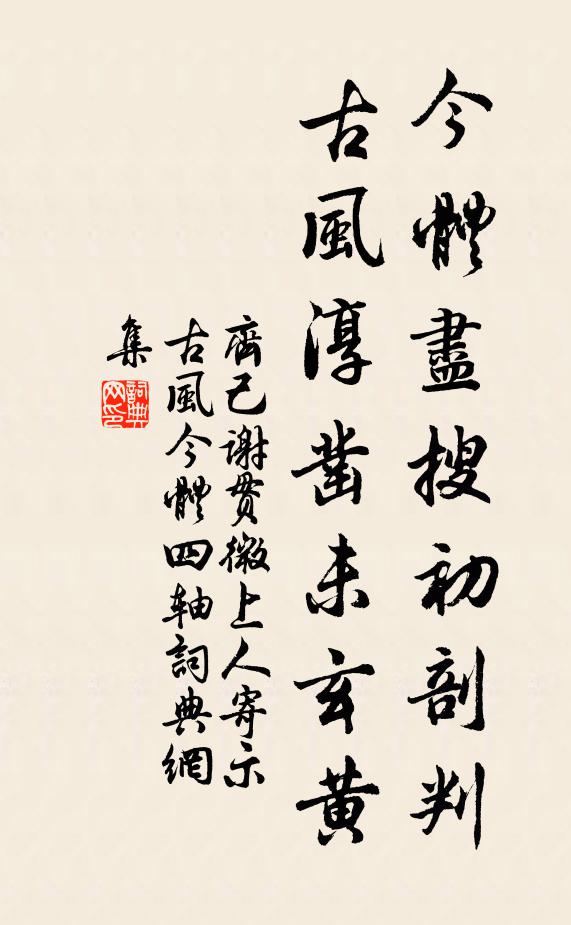 今體盡搜初剖判
古風淳鑿未玄黃
齊己謝貫微上人寄示
古風今體四轴詞典網
集
詞典网印